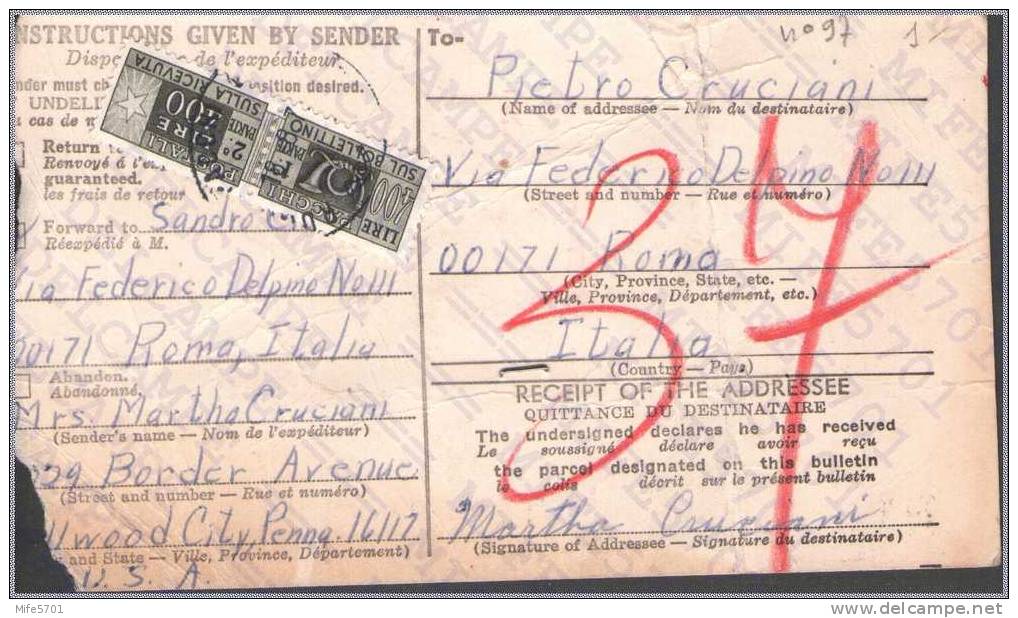 INSTRUCTIONS GIVEN BY SENDER
de l'expéditeur
must sition desired.
UNDELI
cas de
Return
Renvoyé à l'e
guaranteed.
les frais de retour
Forward to Sandro
Réexpédié à M.
Via Federico Delpino No111
00171 Roma, Italia
Abandon.
Abandonné.
Mrs. Martha Cruciani
(Sender's name — Nom de l'expéditeur)
29 Border Avenue
(Street and number — Rue et numéro)
wood City, Penna. 16117
and State — Ville, Province, Département)
U. S. A.
SULLA RICEVUTA
LIRE
400
PARTE
2ª
POSTALI
SUL BOLLETTINO
PARTE
1ª
PACCHI
LIRE
400
nº 97 1
To-
Pietro Cruciani
(Name of addressee — Nom du destinataire)
Via Federico Delpino No111
(Street and number — Rue et numéro)
00171 Roma
(City, Province, State, etc. —
Ville, Province, Département, etc.)
Italia
(Country — Pays)
34
7
RECEIPT OF THE ADDRESSEE
QUITTANCE DU DESTINATAIRE
The undersigned declares he has received
Le soussigné déclare avoir reçu
the parcel designated on this bulletin
le colis décrit sur le présent bulletin
Martha Cruciani
(Signature of Addressee — Signature du destinataire)
Mife5701
delcampe.net